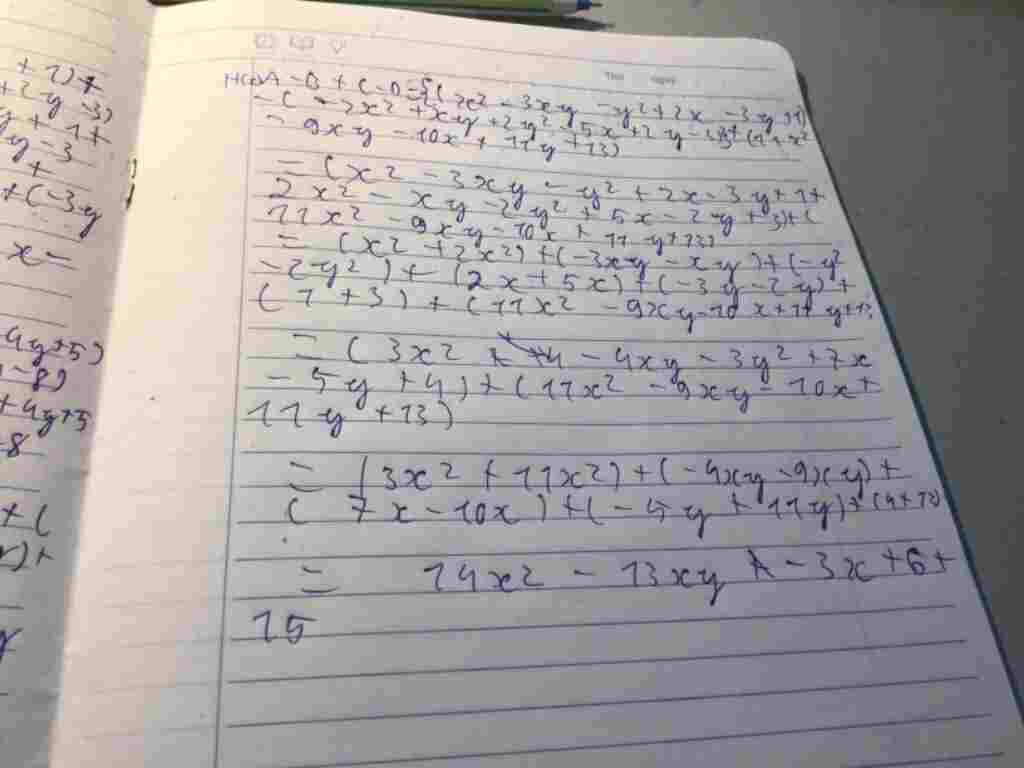 + 1) +
+ 2y - 3)
y + 1 +
2y - 3
+
+ (-3y
x -
4y + 5)
- 8)
+ 4y + 5
- 8
+ (
) +
A - B + C - D = (x2 - 3xy - y2 + 2x - 3y + 1)
- ( - 2x2 + xy + 2y2 - 5x + 2y - 3) + (11x2
- 9xy - 10x + 11y + 13)
= (x2 - 3xy - y2 + 2x - 3y + 1 +
2x2 - xy - 2y2 + 5x - 2y + 3) + (
11x2 - 9xy - 10x + 11y + 13)
= (x2 + 2x2) + (-3xy - xy) + (-y2
- 2y2) + (2x + 5x) + (-3y - 2y) +
(1 + 3) + (11x2 - 9xy - 10x + 11y + 13
= (3x2 - 4xy - 3y2 + 7x
- 5y + 4) + (11x2 - 9xy - 10x +
11y + 13)
= (3x2 + 11x2) + (-4xy - 9xy) +
( 7x - 10x) + (-5y + 11y) + (4 +
= 14x2 - 13xy - 3x + 6 +
15